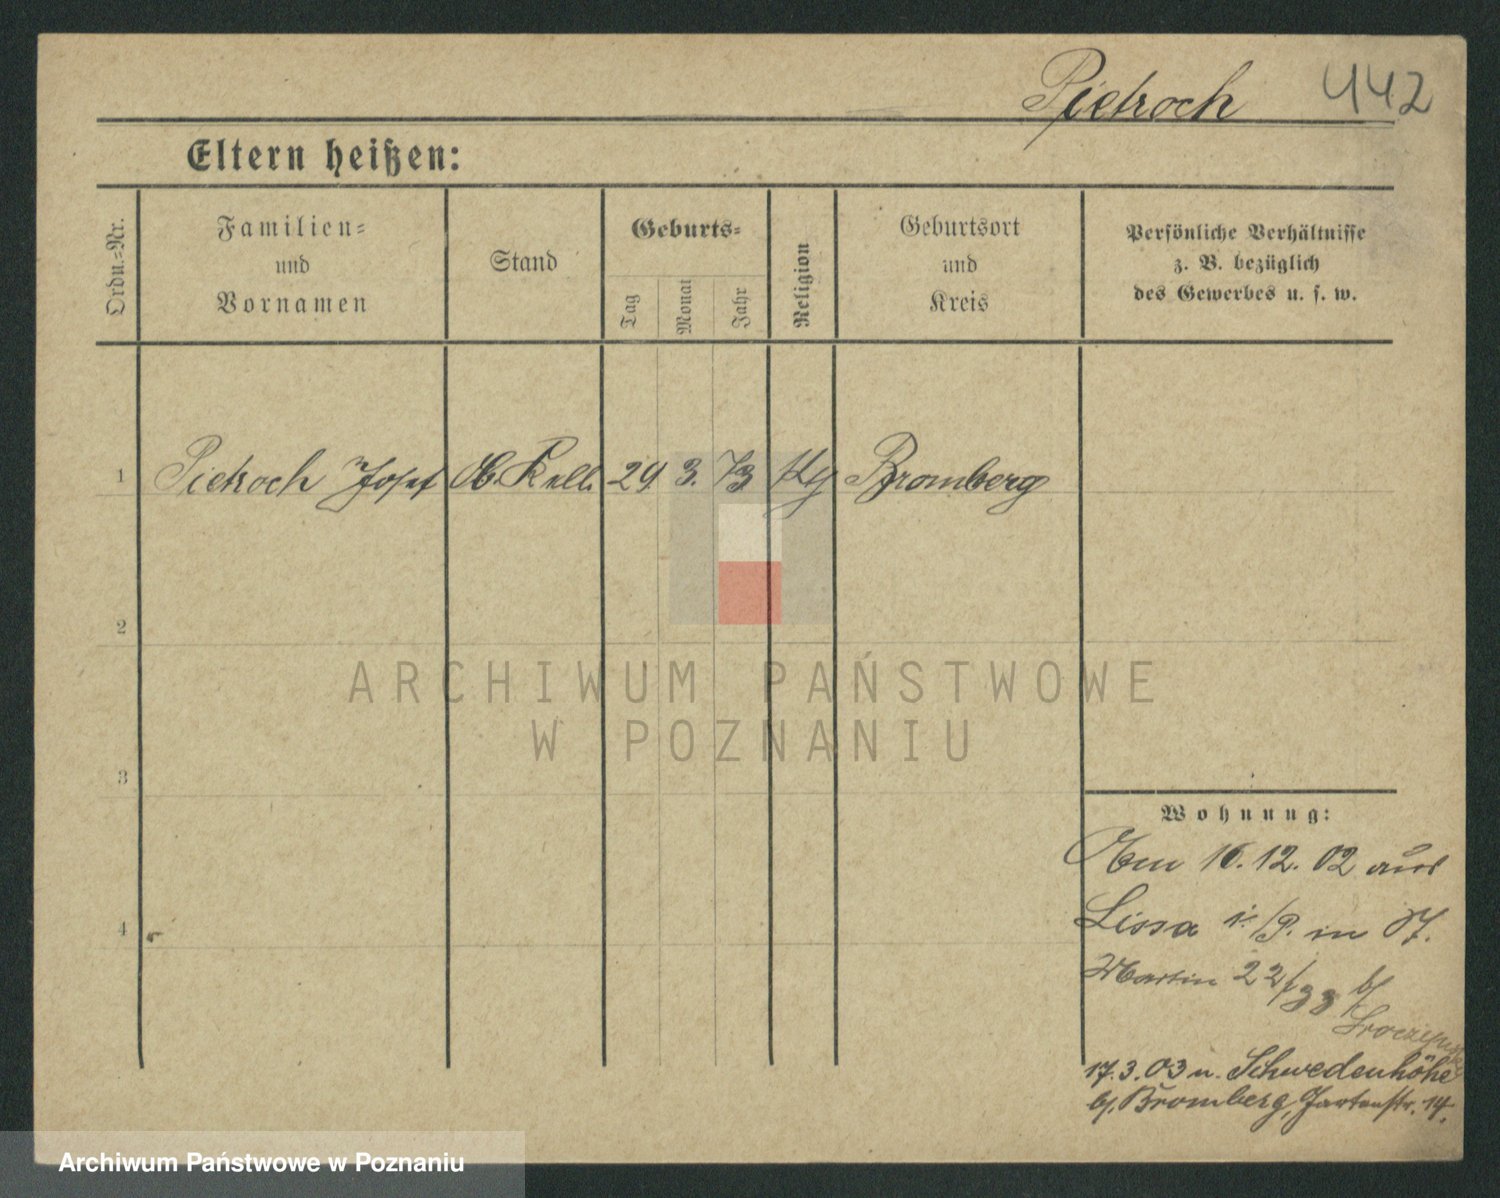 Pietroch 442
Eltern heißen:
Ordn.-Nr.
Familien=
und
Vornamen
Stand
Geburts=
Tag
Monat
Jahr
Religion
Geburtsort
und
Kreis
Persönliche Verhältnisse
z. B. bezüglich
des Gewerbes u. s. w.
1 Pietroch Josef Ob. Kell. 29. 3. 73 Bromberg
2
ARCHIWUM PAŃSTWOWE
W POZNANIU
3
Wohnung:
Am 16.12.02 aus
4
Lissa i./P. in
Martin 22/33 b/
17.3.03 n. Schwedenhöhe
b/. Bromberg, Gartenstr. 14.
Archiwum Państwowe w Poznaniu